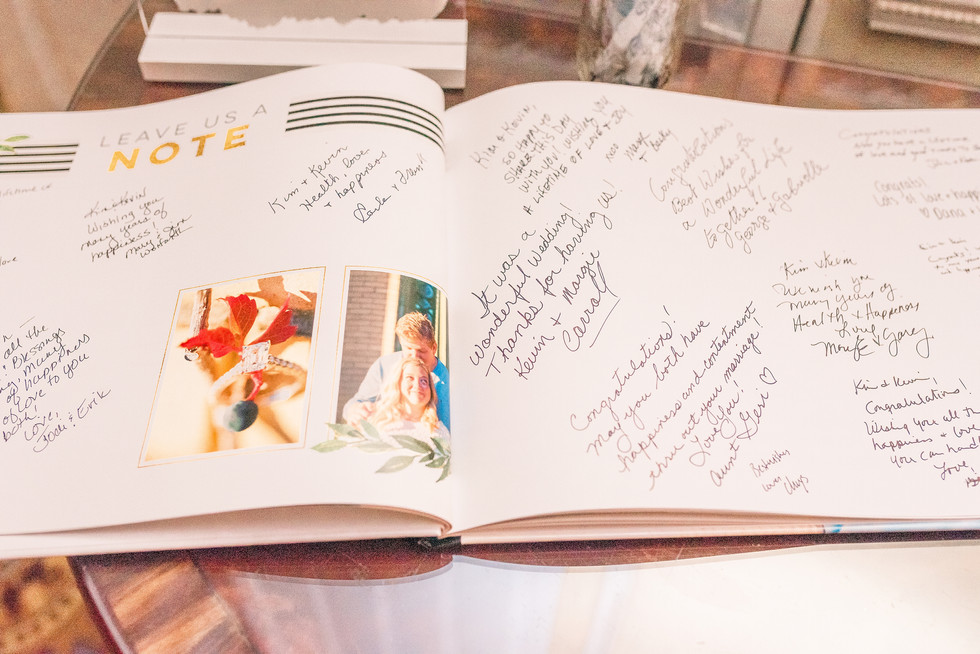 LEAVE US A
NOTE
Kim + Kevin
Health, love
+ happiness
Wishing you
many years of
happiness!
all the
blessings
many
of happiness
of love to you
both!
Love,
Jodi & Erik
Kim & Kevin,
SO HAPPY TO
SHARE THIS DAY
WITH YOU! WISHING YOU
A LIFETIME OF LOVE & JOY
It was a
wonderful Wedding!
Thanks for having us!
Kevin + Margie
Carroll
Congratulations
Best Wishes for
a Wonderful Life
together!!
George & Gabrielle
Congratulations!
May you both have
happiness and contentment
thru out your marriage!
Love You!
Aunt Geri ♡
Best wishes
Love
Congratulations
Congrats!
Lots of love + happ
♡ Dana
We wish you
Many Years of
Health & Happiness
Love
Gary
Kim & Kevin,
Congratulations!
Wishing you all th
happiness + love
you can hand
Love!